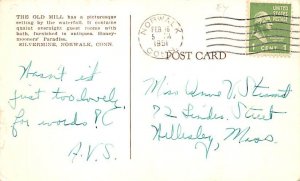 THE OLD MILL has a picturesque
setting by the waterfall. It contains
quaint overnight guest rooms with
bath, furnished in antiques. Honey-
mooners' Paradise.
SILVERMINE, NORWALK, CONN.
NORWALK
FEB
1951
CONN.
UNITED STATES
POSTAGE
1 CENT 1
POST CARD
Hasn't it
just too lovely
for words? C
A.V.S.
Miss Anne V. Strout
82 Linden Street
Wellesley,
Mass